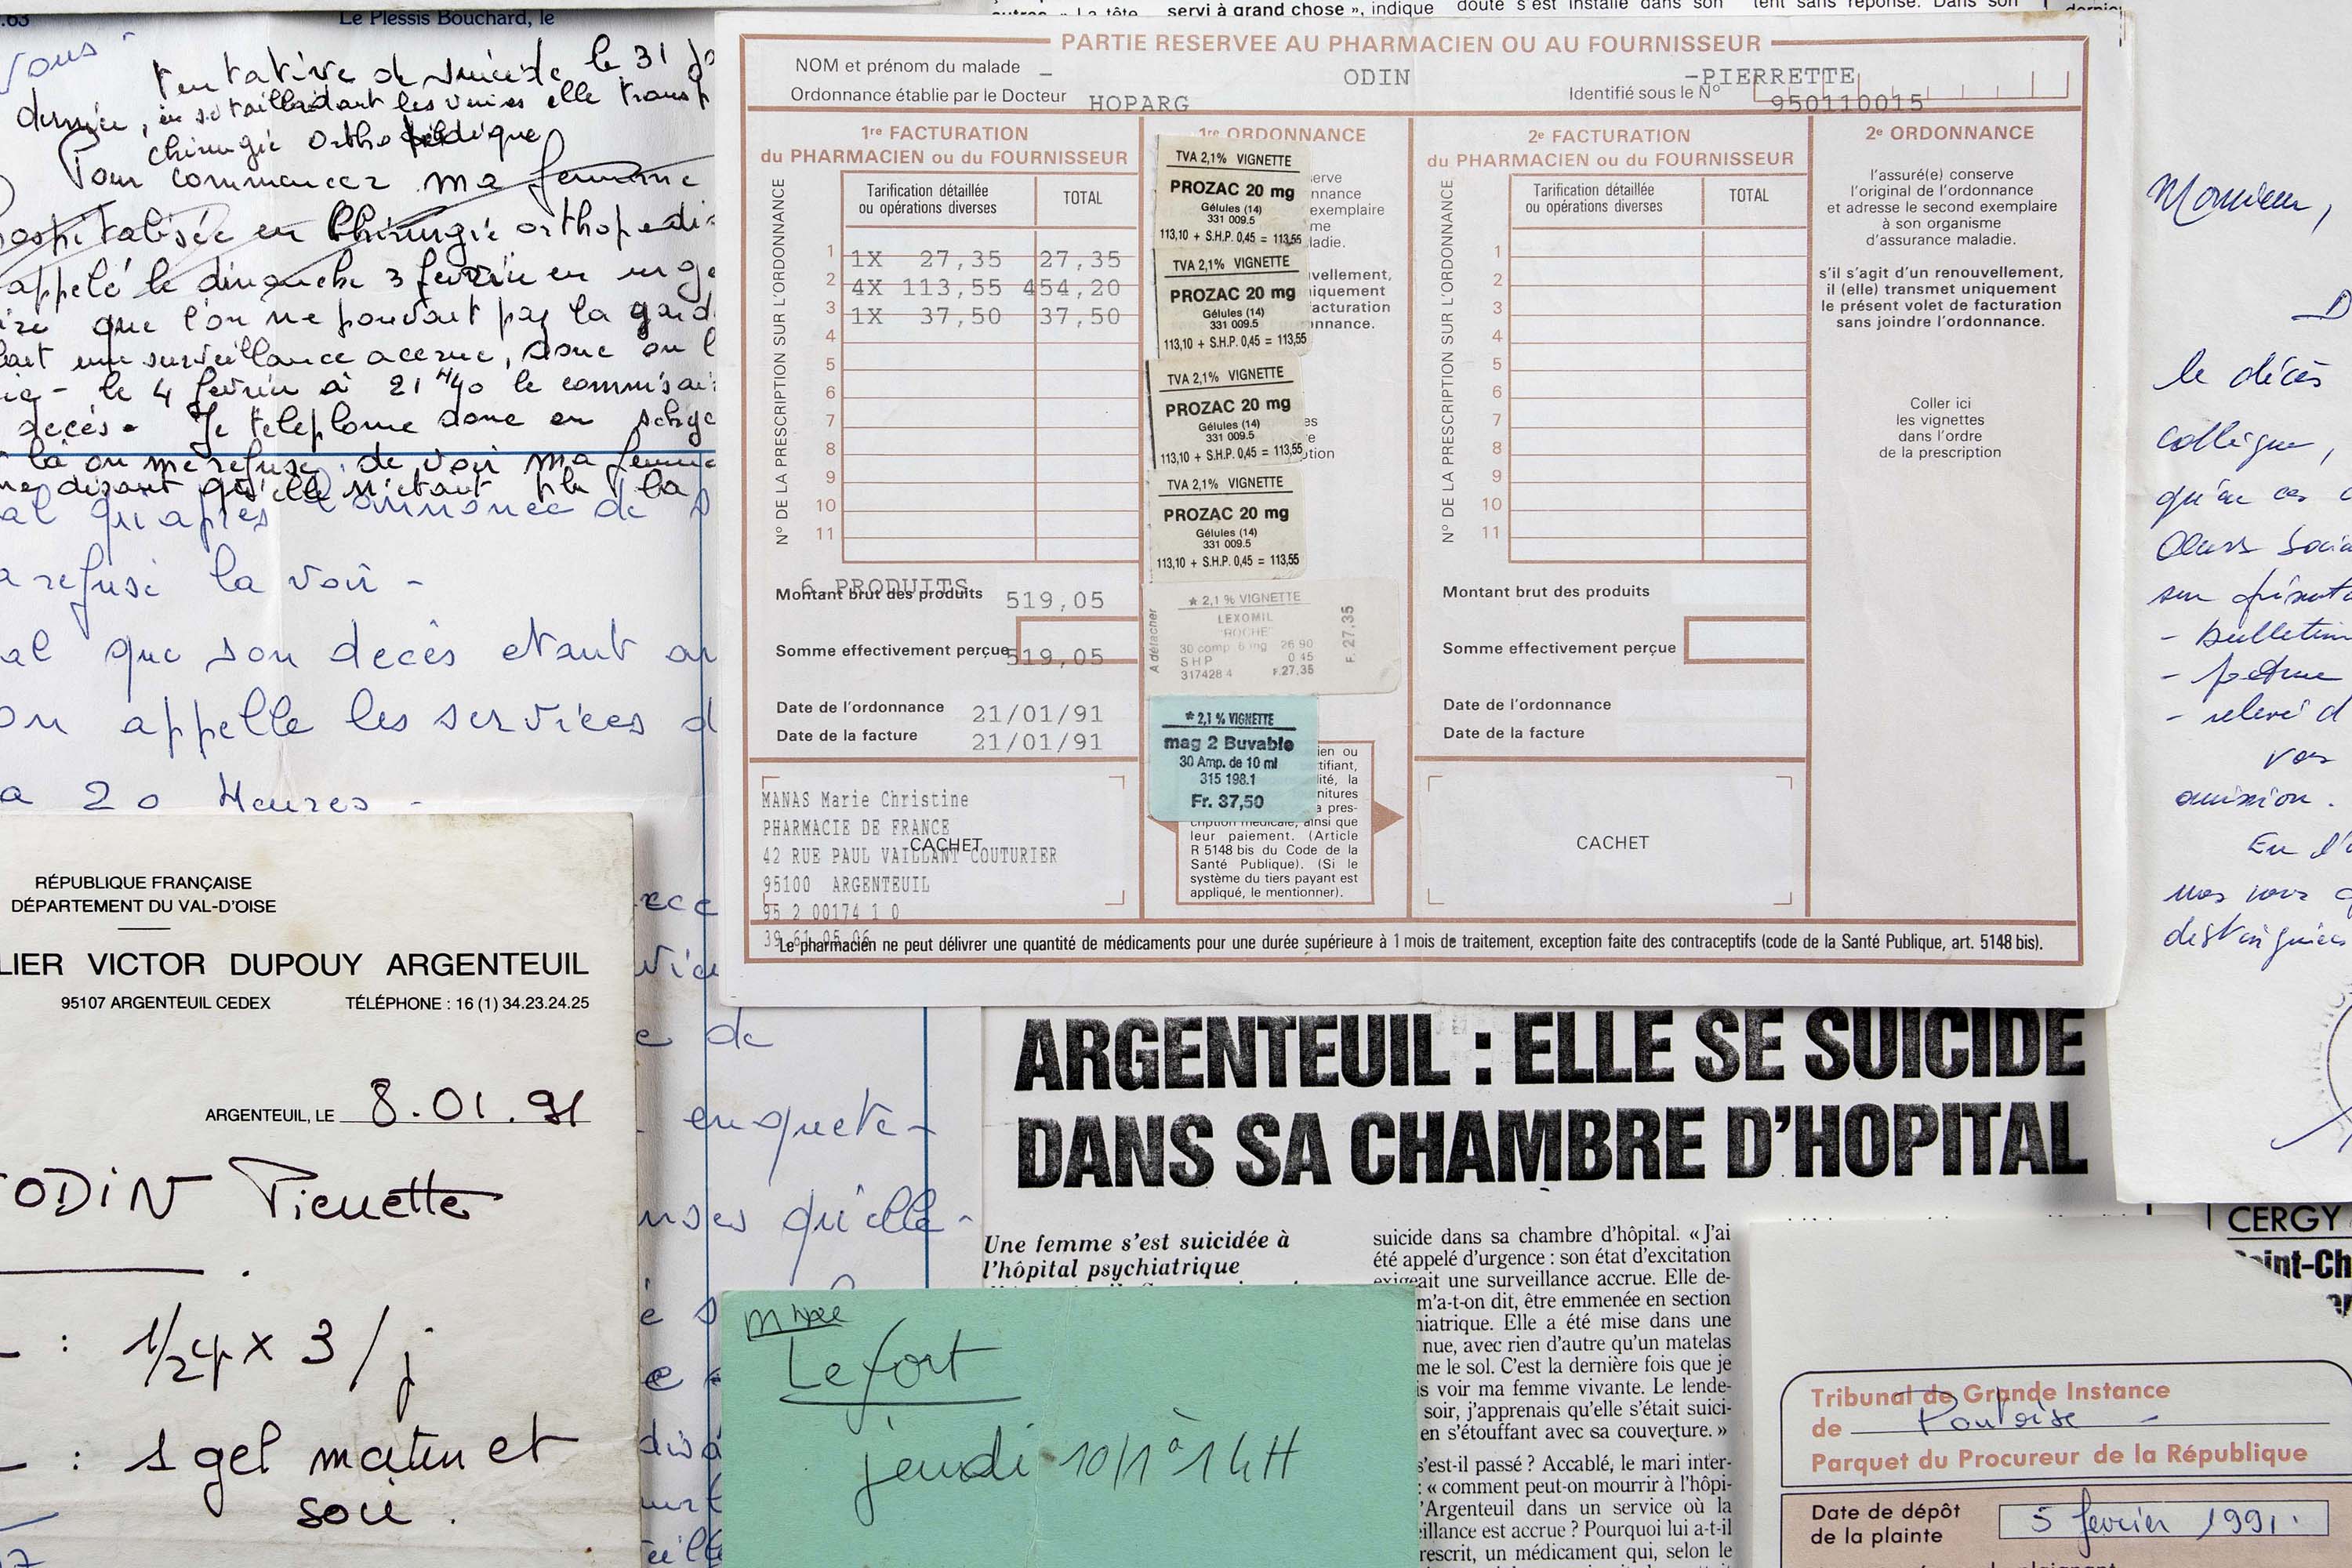 .63
Le Plessis Bouchard, le
vous
tentative de suicide le 31
dernier, en se tailladant les veines elle
chirurgie orthopédique
Pour commencer ma femme
hospitalisée en chirurgie
appelé le dimanche 3 février en
que l'on ne pouvait pas la
une surveillance accrue, donc on
le 4 février à 21 H 40 le
décès. Je telephone donc en
là on me refuse de voir ma femme
disant qu'elle n'étant la
qu'après l'annonce de
refusé la voir -
que son decès etant
appelle les services
a 20 Heures -
RÉPUBLIQUE FRANÇAISE
DÉPARTEMENT DU VAL-D'OISE
LIER VICTOR DUPOUY ARGENTEUIL
95107 ARGENTEUIL CEDEX TÉLÉPHONE : 16 (1) 34.23.24.25
ARGENTEUIL, LE 8.01.91
ODIN Pierrette
: 1/24 x 3 / j
: 1 gel matin et
soir.
de
enquete -
qu'elle -
servi à grand chose », indique
doute s'est installé dans son
tent sans réponse. Dans son
PARTIE RESERVEE AU PHARMACIEN OU AU FOURNISSEUR
NOM et prénom du malade - ODIN -PIERRETTE
Ordonnance établie par le Docteur HOPARG Identifié sous le N° 950110015
1re FACTURATION
du PHARMACIEN ou du FOURNISSEUR
N° DE LA PRESCRIPTION SUR L'ORDONNANCE
Tarification détaillée
ou opérations diverses
TOTAL
1 1X 27,35 27,35
2 4X 113,55 454,20
3 1X 37,50 37,50
4
5
6
7
8
9
10
11
6 PRODUITS
Montant brut des produits 519,05
Somme effectivement perçue 519,05
Date de l'ordonnance 21/01/91
Date de la facture 21/01/91
MANAS Marie Christine
PHARMACIE DE FRANCE
CACHET
42 RUE PAUL VAILLANT COUTURIER
95100 ARGENTEUIL
95 2 00174 1 0
39 61 05 06
1re ORDONNANCE
TVA 2,1% VIGNETTE
PROZAC 20 mg
Gélules (14)
331 009.5
113,10 + S.H.P. 0,45 = 113,55
TVA 2,1% VIGNETTE
PROZAC 20 mg
Gélules (14)
331 009.5
113,10 + S.H.P. 0,45 = 113,55
TVA 2,1% VIGNETTE
PROZAC 20 mg
Gélules (14)
331 009.5
113,10 + S.H.P. 0,45 = 113,55
TVA 2,1% VIGNETTE
PROZAC 20 mg
Gélules (14)
331 009.5
113,10 + S.H.P. 0,45 = 113,55
A détacher
* 2,1 % VIGNETTE
LEXOMIL
"ROCHE"
30 comp 6 mg 26 90
SHP 0 45
317428 4 F.27,35
F. 27,35
* 2,1 % VIGNETTE
mag 2 Buvable
30 Amp. de 10 ml
315 198.1
Fr. 37,50
cription médicale, ainsi que
leur paiement. (Article
R 5148 bis du Code de la
Santé Publique). (Si le
système du tiers payant est
appliqué, le mentionner).
2e FACTURATION
du PHARMACIEN ou du FOURNISSEUR
N° DE LA PRESCRIPTION SUR L'ORDONNANCE
Tarification détaillée
ou opérations diverses
TOTAL
1
2
3
4
5
6
7
8
9
10
11
Montant brut des produits
Somme effectivement perçue
Date de l'ordonnance
Date de la facture
CACHET
2e ORDONNANCE
l'assuré(e) conserve
l'original de l'ordonnance
et adresse le second exemplaire
à son organisme
d'assurance maladie.
s'il s'agit d'un renouvellement,
il (elle) transmet uniquement
le présent volet de facturation
sans joindre l'ordonnance.
Coller ici
les vignettes
dans l'ordre
de la prescription
Le pharmacien ne peut délivrer une quantité de médicaments pour une durée supérieure à 1 mois de traitement, exception faite des contraceptifs (code de la Santé Publique, art. 5148 bis).
ARGENTEUIL : ELLE SE SUICIDE
DANS SA CHAMBRE D'HOPITAL
Une femme s'est suicidée à
l'hôpital psychiatrique
suicide dans sa chambre d'hôpital. « J'ai
été appelé d'urgence : son état d'excitation
exigeait une surveillance accrue. Elle de-
m'a-t-on dit, être emmenée en section
hiatrique. Elle a été mise dans une
nue, avec rien d'autre qu'un matelas
me le sol. C'est la dernière fois que je
is voir ma femme vivante. Le lende-
soir, j'apprenais qu'elle s'était suici-
en s'étouffant avec sa couverture. »
s'est-il passé ? Accablé, le mari inter-
: « comment peut-on mourir à l'hôpi-
'Argenteuil dans un service où la
illance est accrue ? Pourquoi lui a-t-il
rescrit, un médicament qui, selon le
Mme
Lefort
jeudi 10/1 à 14H
Monsieur,
le décès
collègue,
qu'au cas
- bulletin
- facture
- relevé d
vos
omission.
En
distinguées
CERGY
int-Ch
Tribunal de Grande Instance
de Pontoise -
Parquet du Procureur de la République
Date de dépôt
de la plainte
5 février 1991.